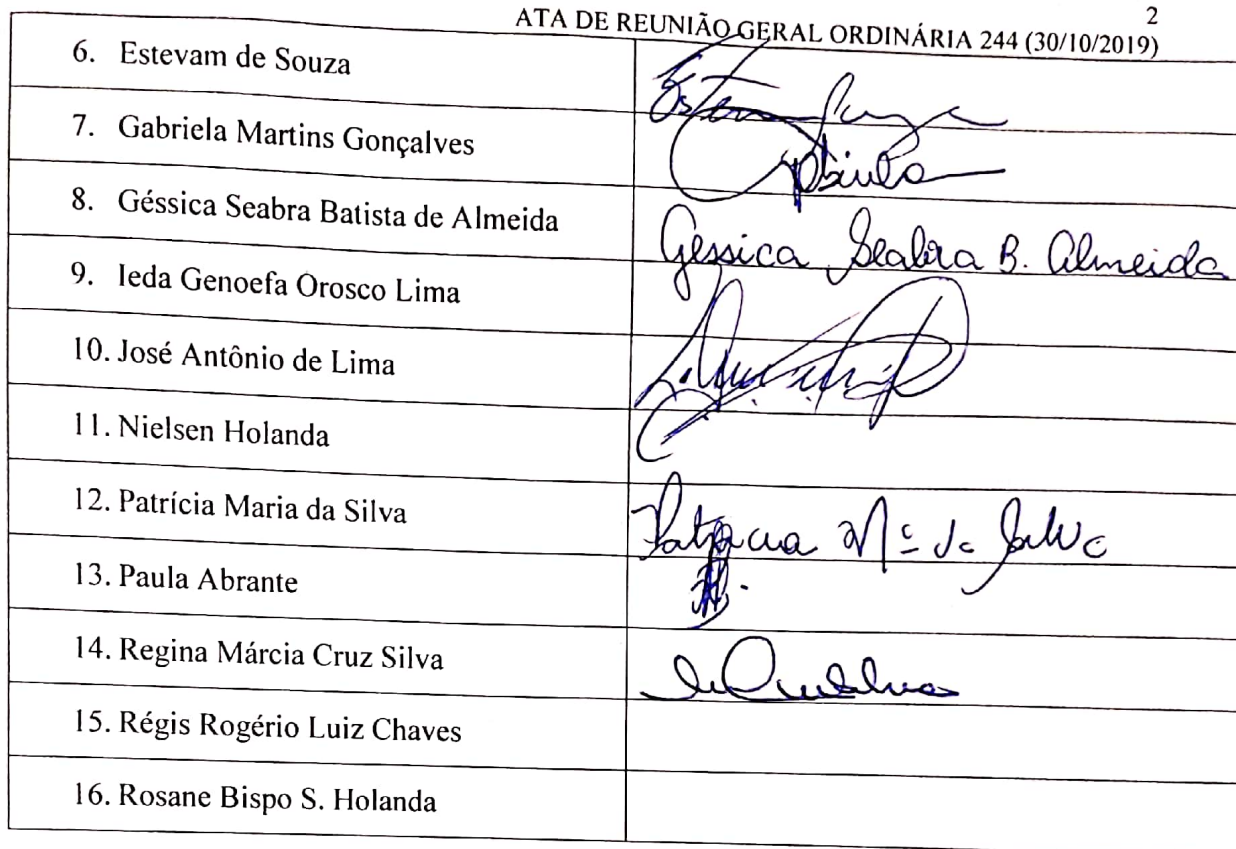 2
ATA DE REUNIÃO GERAL ORDINÁRIA 244 (30/10/2019)
6. Estevam de Souza
7. Gabriela Martins Gonçalves
8. Géssica Seabra Batista de Almeida
Géssica Seabra B. Almeida
9. Ieda Genoefa Orosco Lima
10. José Antônio de Lima
11. Nielsen Holanda
12. Patrícia Maria da Silva
Patrícia Mª da Silva
13. Paula Abrante
14. Regina Márcia Cruz Silva
15. Régis Rogério Luiz Chaves
16. Rosane Bispo S. Holanda